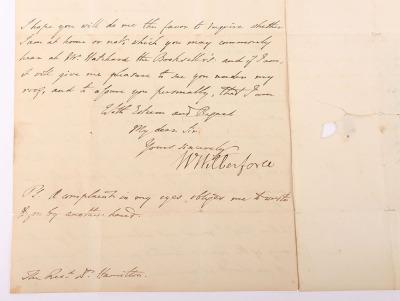 I hope you will do me the favor to inquire whether
I am at home or not, which you may commonly
hear at Mr. Hatchard the Bookseller's. and if I am,
it will give me pleasure to see you under my
roof, and to assure you personally, that I am
With Esteem and Regard
My dear Sir
Yours sincerely
W Wilberforce
PS. A complaint in my eyes obliges me to write
to you by another hand.
The Revd. Dr. Hamilton.